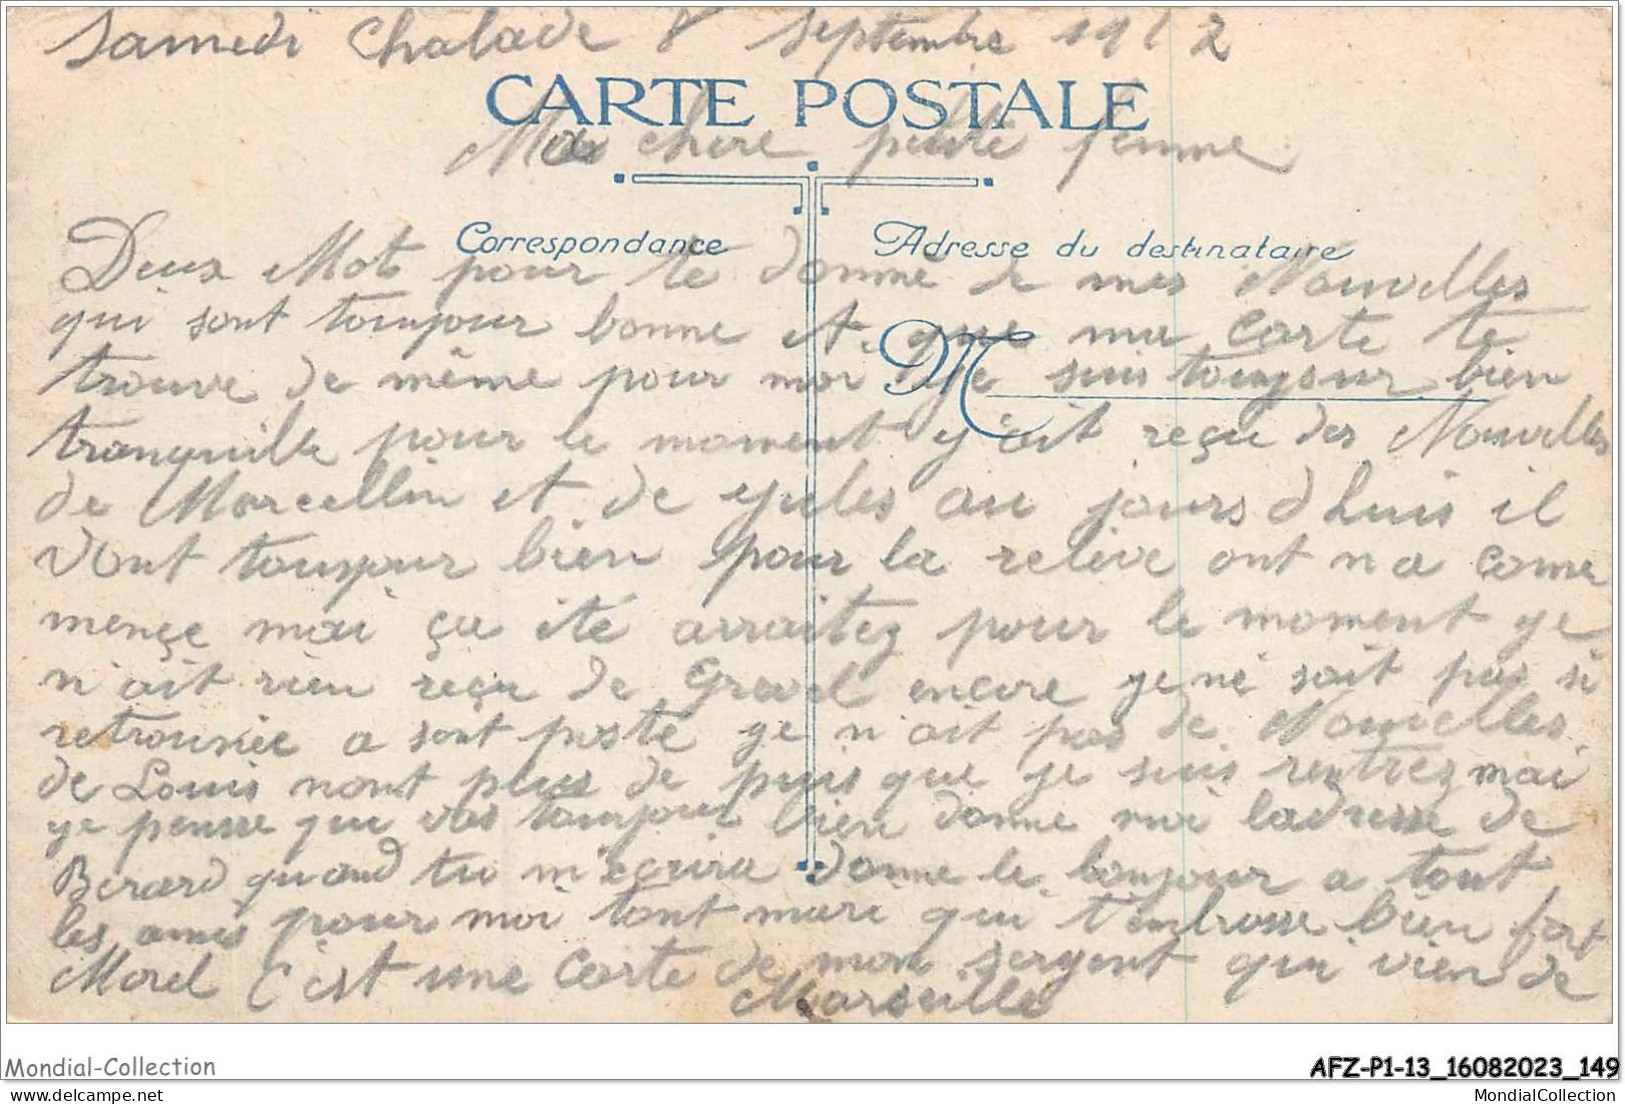 Samedi Chalade 8 Septembre 1912
CARTE POSTALE
Ma chere petite femme
Correspondance
Adresse du destinataire
Deux Mots pour te donné de mes Nouvelles
qui sont toujour bonne et que ma Carte te
trouve de même pour moi ye suis toujour bien
M
tranquille pour le moment y'ait reçu des Nouvelles
de Marcellin et de yules au jours d huis il
vont toujour bien pour la relève ont n a come
mençe mai ça été arraitez pour le moment ye
n'ait rien reçu de encore ye ne sait pas si
retrouvée a sont poste ye n'ait pas de Nouvelles
de Louis nont plus de puis que je suis rentrez mai
ye pense qui vas toujour bien donne moi ladresse de
Berard quand tu m'ecrira donne le bonjour a tout
les amis pour moi tont mari qui t'embrasse bien fort
Morel C'est une Carte de mon sergent qui vien de
Marseille
Mondial-Collection
AFZ-P1-13_16082023_149
delcampe.net
MondialCollection